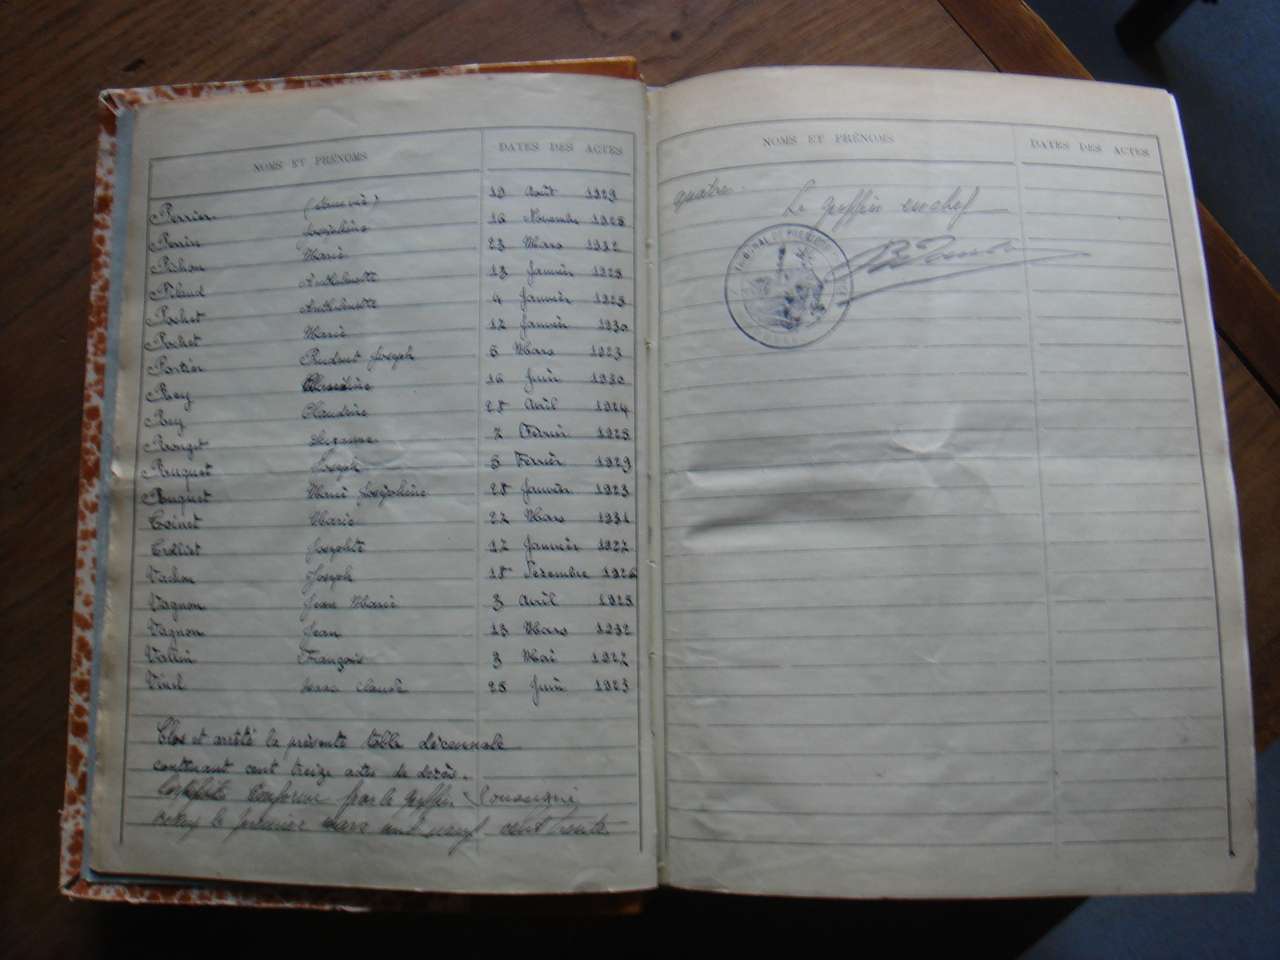 NOMS ET PRÉNOMS DATES DES ACTES
Perrier 19 Août 1929
Perrin Joséphine 16 Novembre 1928
Pichon Marie 23 Mars 1932
Anthelmette 13 Janvier 1928
Pochet Anthelmette 4 Janvier 1928
Pochet Marie 12 Janvier 1930
Portier Joseph 6 Mars 1923
Rey 16 Juin 1930
Rey Claudine 28 Avril 1924
Rouget Suzanne 2 Février 1928
Ruquet Joseph 5 Février 1929
Ruquet Marie Joséphine 28 Janvier 1923
Coinet Marie 22 Mars 1931
Trolliet Josephte 12 Janvier 1927
Vachon Joseph 18 Décembre 1926
Vagnon Jean Marie 3 Avril 1928
Vagnon Jean 13 Mars 1932
Vallin François 3 Mai 1927
Vinel Jean Claude 28 Juin 1923
Clos et arrêté la présente table décennale
contenant cent treize actes de décès.
conforme par le greffier soussigné
le premier mars mil neuf cent trente
NOMS ET PRÉNOMS DATES DES ACTES
quatre.
Le greffier en chef
TRIBUNAL DE PREMIERE